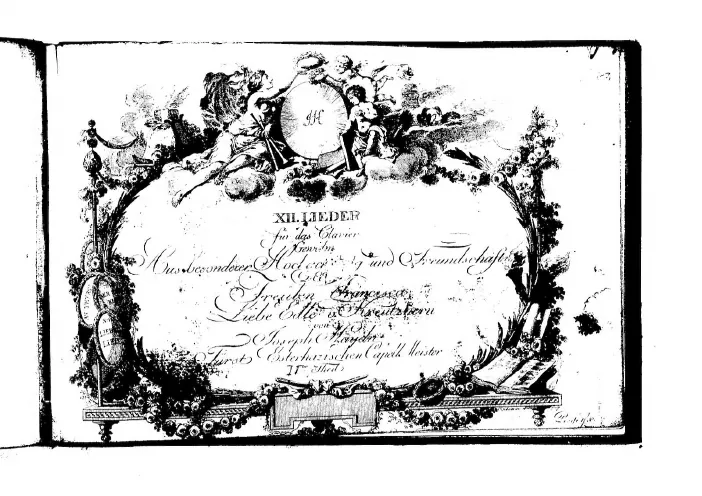 JH
XII. LIEDER
für das Clavier
Gewidmet
Aus besonderer und Freundschaft
der
Freulen Francisca
Liebe Edle v Kreutznern
von
Joseph Haydn
Fürst Esterhazischen Capell Meister
IIer Theil